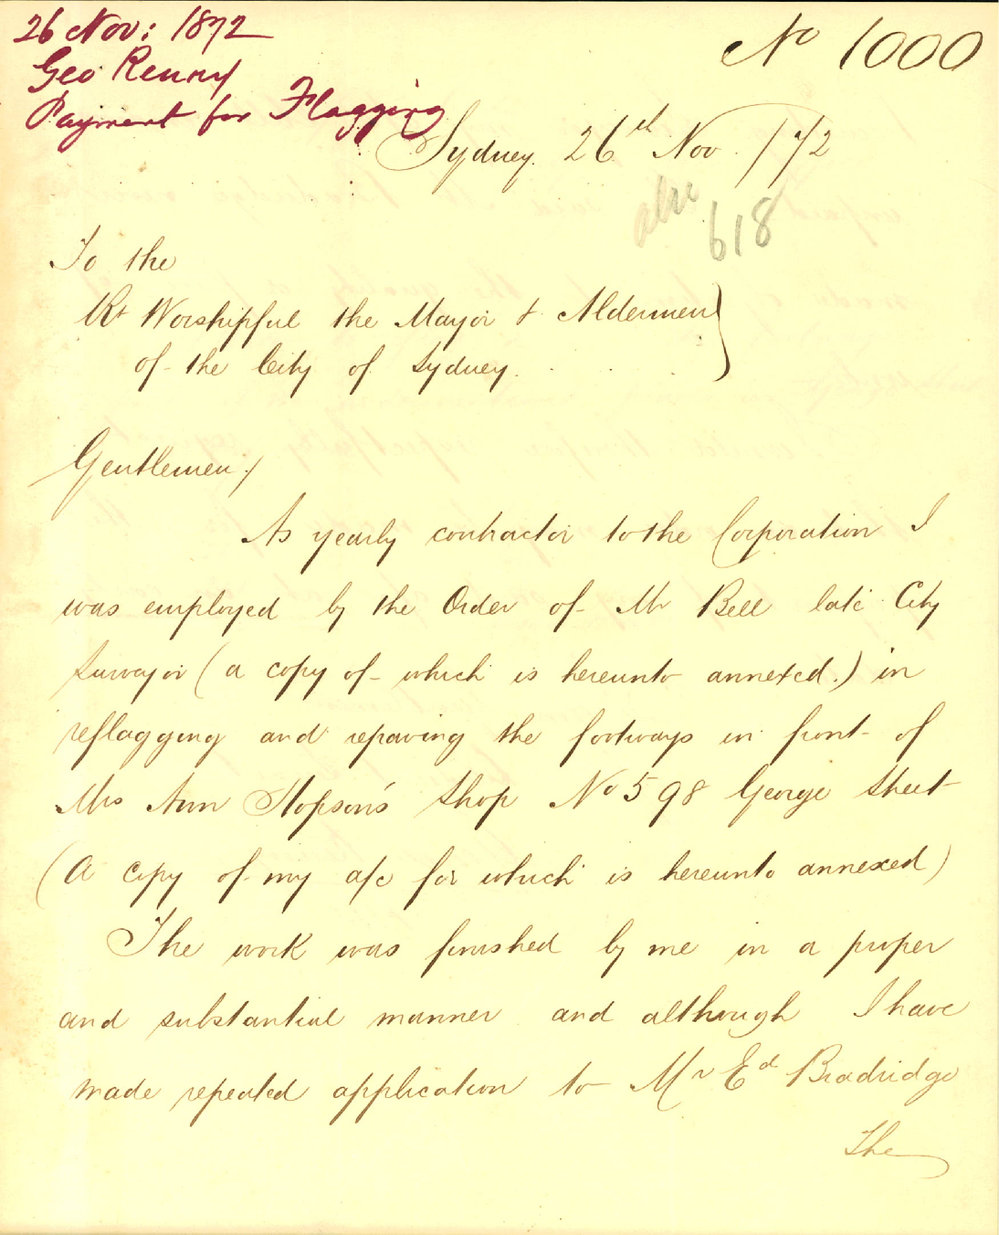 26 Nov: 1872
Geo Renny
Payment for Flagging
No 1000
Sydney. 26th Nov. /72
618
To the
Rt Worshipful the Mayor & Aldermen
of the City of Sydney.
Gentlemen,
As yearly contractor to the Corporation I
was employed by the Order of Mr Bell late City
Surveyor (a copy of which is hereunto annexed.) in
reflagging and repaving the footways in front of
Mrs Ann Hopson's Shop No 598 George Street
(A copy of my a/c for which is hereunto annexed)
The work was finished by me in a proper
and substantial manner and although I have
made repeated application to Mr Ed Bradridge
The